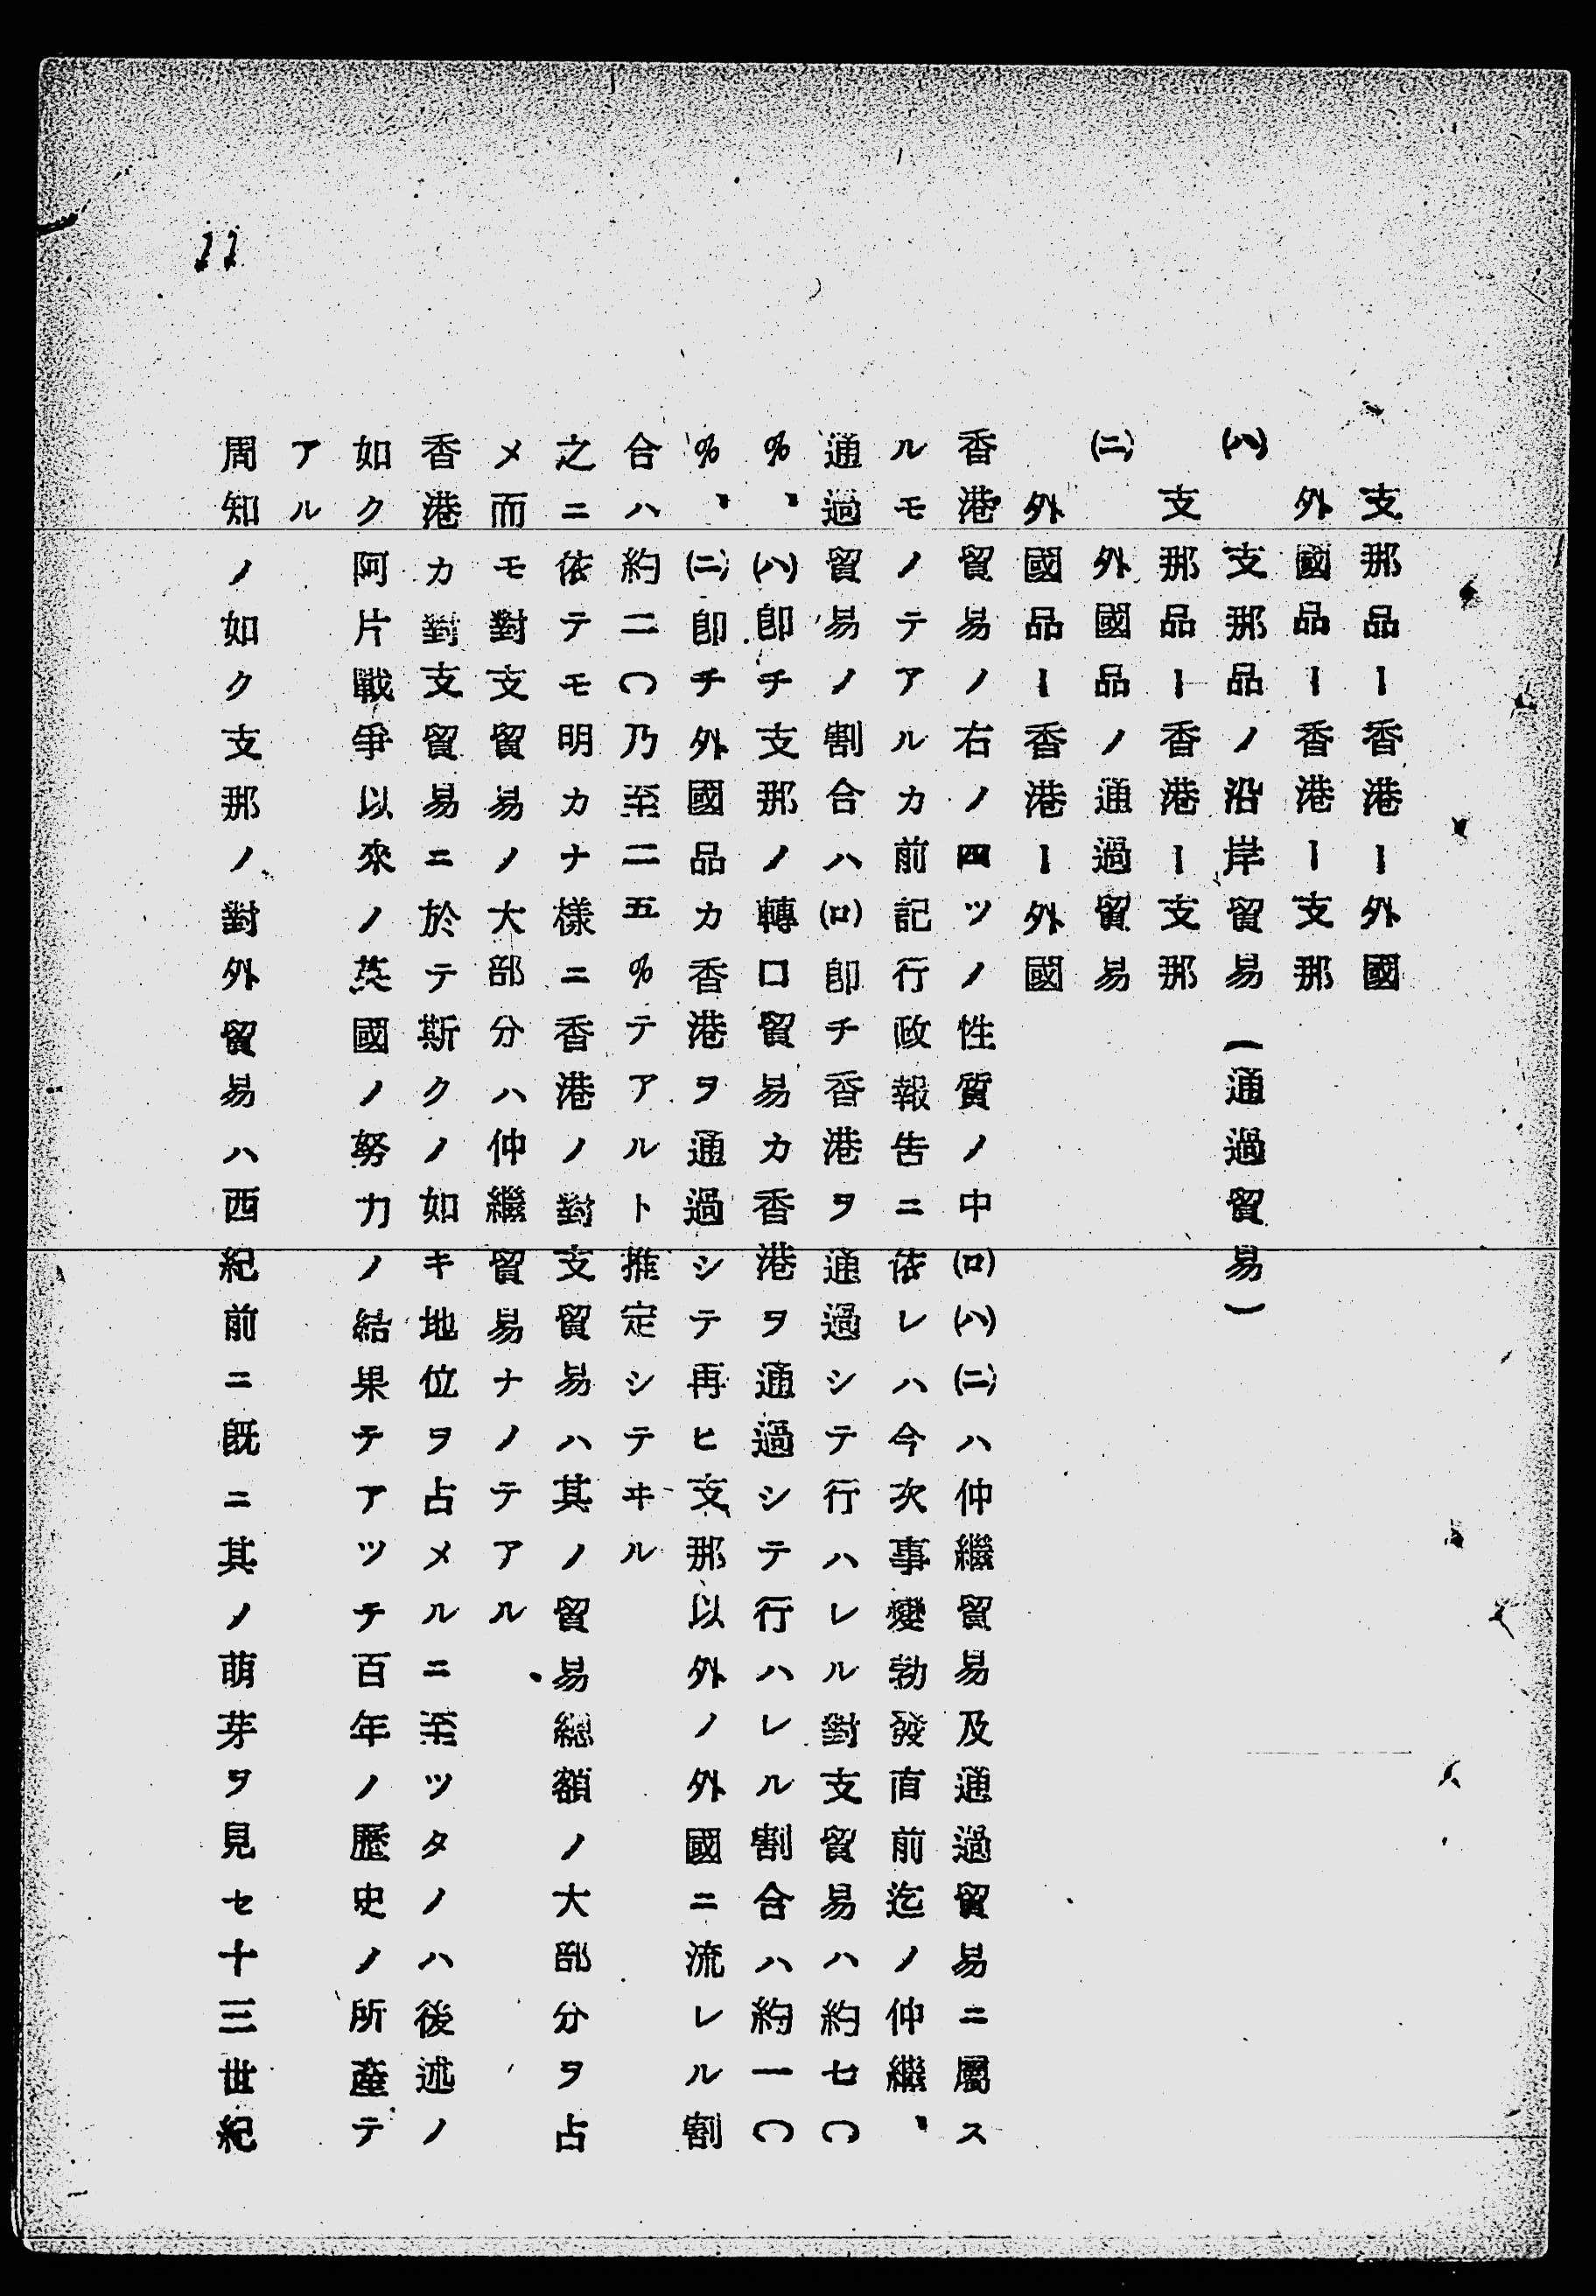 11
支那品ー香港ー外國
外國品ー香港ー支那
(ハ)支那品ノ沿岸貿易(通過貿易)
支那品ー香港ー支那
(ニ)外國品ノ通過貿易
外國品ー香港ー外國
香港貿易ノ右ノ四ツノ性質ノ中(ロ)(ハ)(ニ)ハ仲繼貿易及通過貿易ニ屬ス
ルモノテアルカ前記行政報告ニ依レハ今次事變勃發直前迄ノ仲繼、
通過貿易ノ割合ハ(ロ)卽チ香港ヲ通過シテ行ハレル對支貿易ハ約七〇
%、(ハ)卽チ支那ノ轉口貿易カ香港ヲ通過シテ行ハレル割合ハ約一〇
%、(ニ)卽チ外國品カ香港ヲ通過シテ再ヒ支那以外ノ外國ニ流レル割
合ハ約二〇乃至二五%テアルト推定シテヰル
之ニ依テモ明カナ樣ニ香港ノ對支貿易ハ其ノ貿易總額ノ大部分ヲ占
メ而モ對支貿易ノ大部分ハ仲繼貿易ナノテアル
香港カ對支貿易ニ於テ斯クノ如キ地位ヲ占メルニ至ツタノハ後述ノ
如ク阿片戰爭以來ノ英國ノ努力ノ結果テアツテ百年ノ歷史ノ所產テ
アル
周知ノ如ク支那ノ對外貿易ハ西紀前ニ既ニ其ノ萌芽ヲ見セ十三世紀